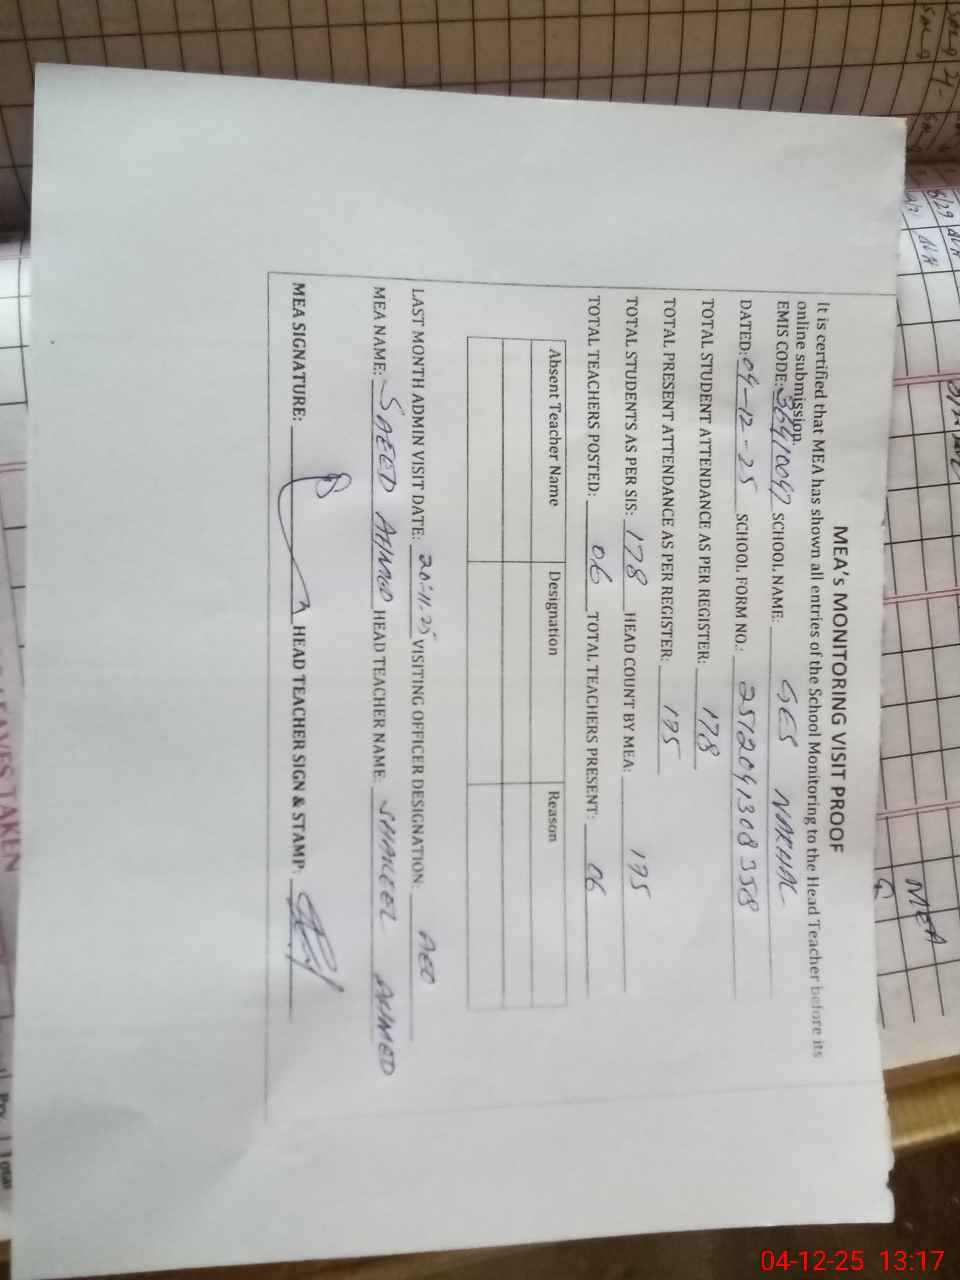 MEA's MONITORING VISIT PROOF
It is certified that MEA has shown all entries of the School Monitoring to the Head Teacher before its
online submission.
EMIS CODE: 36410097 SCHOOL NAME: GES NARHAL
DATED: 04-12-25 SCHOOL FORM NO.: 2512091308358
TOTAL STUDENT ATTENDANCE AS PER REGISTER: 178
TOTAL PRESENT ATTENDANCE AS PER REGISTER: 175
TOTAL STUDENTS AS PER SIS: 178 HEAD COUNT BY MEA: 175
TOTAL TEACHERS POSTED: 06 TOTAL TEACHERS PRESENT: 06
Absent Teacher Name Designation Reason
LAST MONTH ADMIN VISIT DATE: 20-11-25 VISITING OFFICER DESIGNATION: AEO
MEA NAME: SAEED AHMAD HEAD TEACHER NAME: SHAKEEL AHMED
MEA SIGNATURE: HEAD TEACHER SIGN & STAMP:
MEA
LEAVES TAKEN
04-12-25 13:17